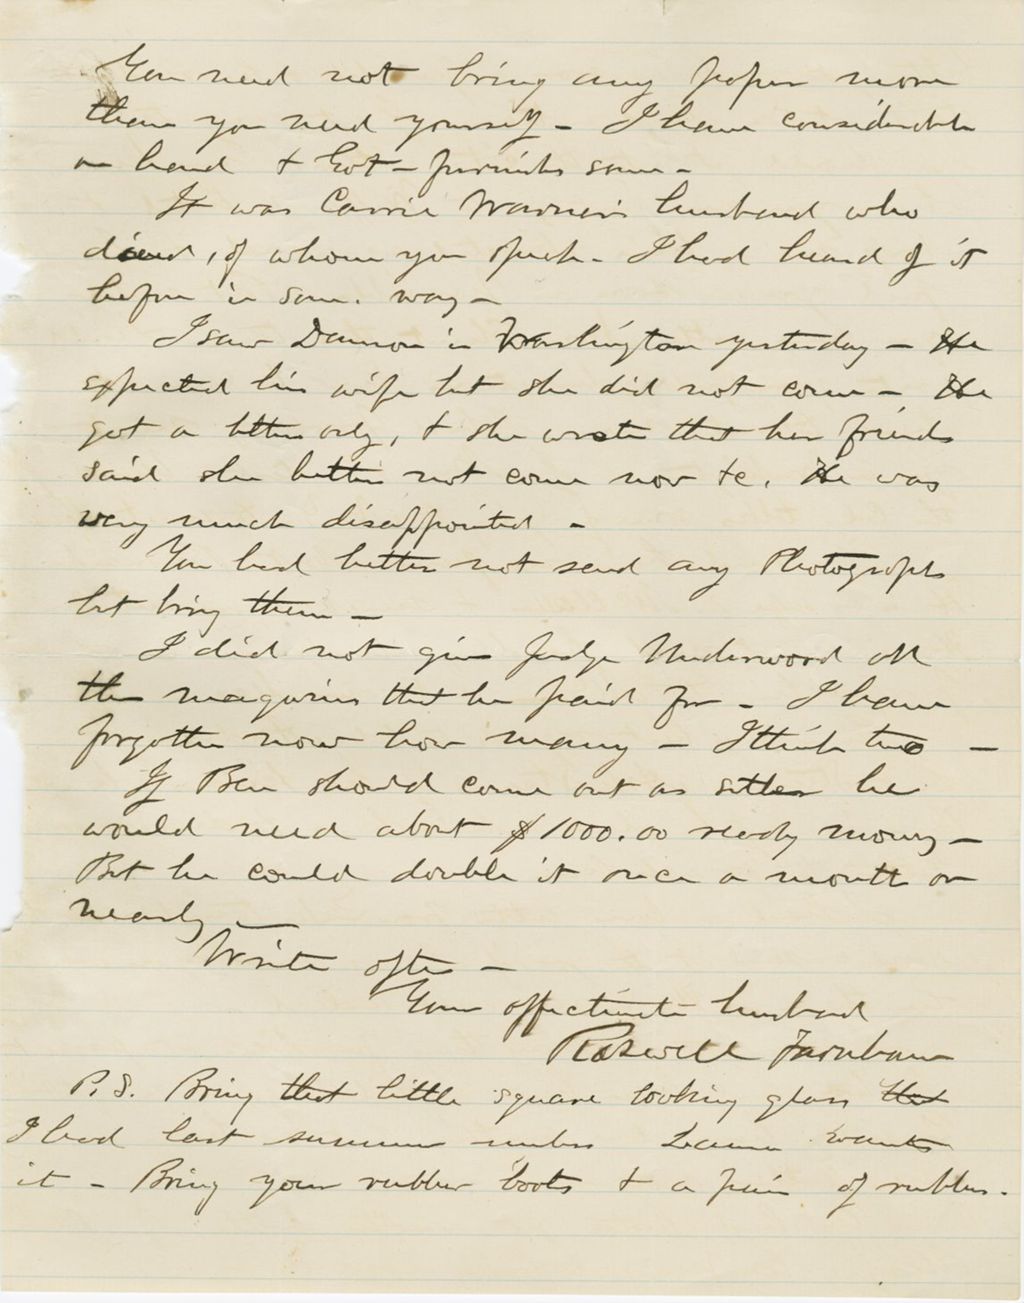 You need not bring any paper more
than you need yourself – I have considerable
on hand & Govt – furnishes some –
It was Carrie Warner's husband who
died, of whom you speak – I had heard of it
before in some way –
I saw Damon in Washington yesterday – He
expected his wife but she did not come – He
got a letter only, & she wrote that her friends
said she better not come now &c. He was
very much disappointed –
You had better not send any Photographs
but bring them –
I did not give Judge Underwood all
the magazines that he paid for – I have
forgotten now how many – I think two –
If Ben should come out as sutler he
would need about $1000.00 ready money –
But he could double it once a month or
nearly –
Write often –
Your affectionate husband
Roswell Farnham
P.S. Bring that little square looking glass that
I had last summer unless Laura wants
it – Bring your rubber boots & a pair of rubbers.